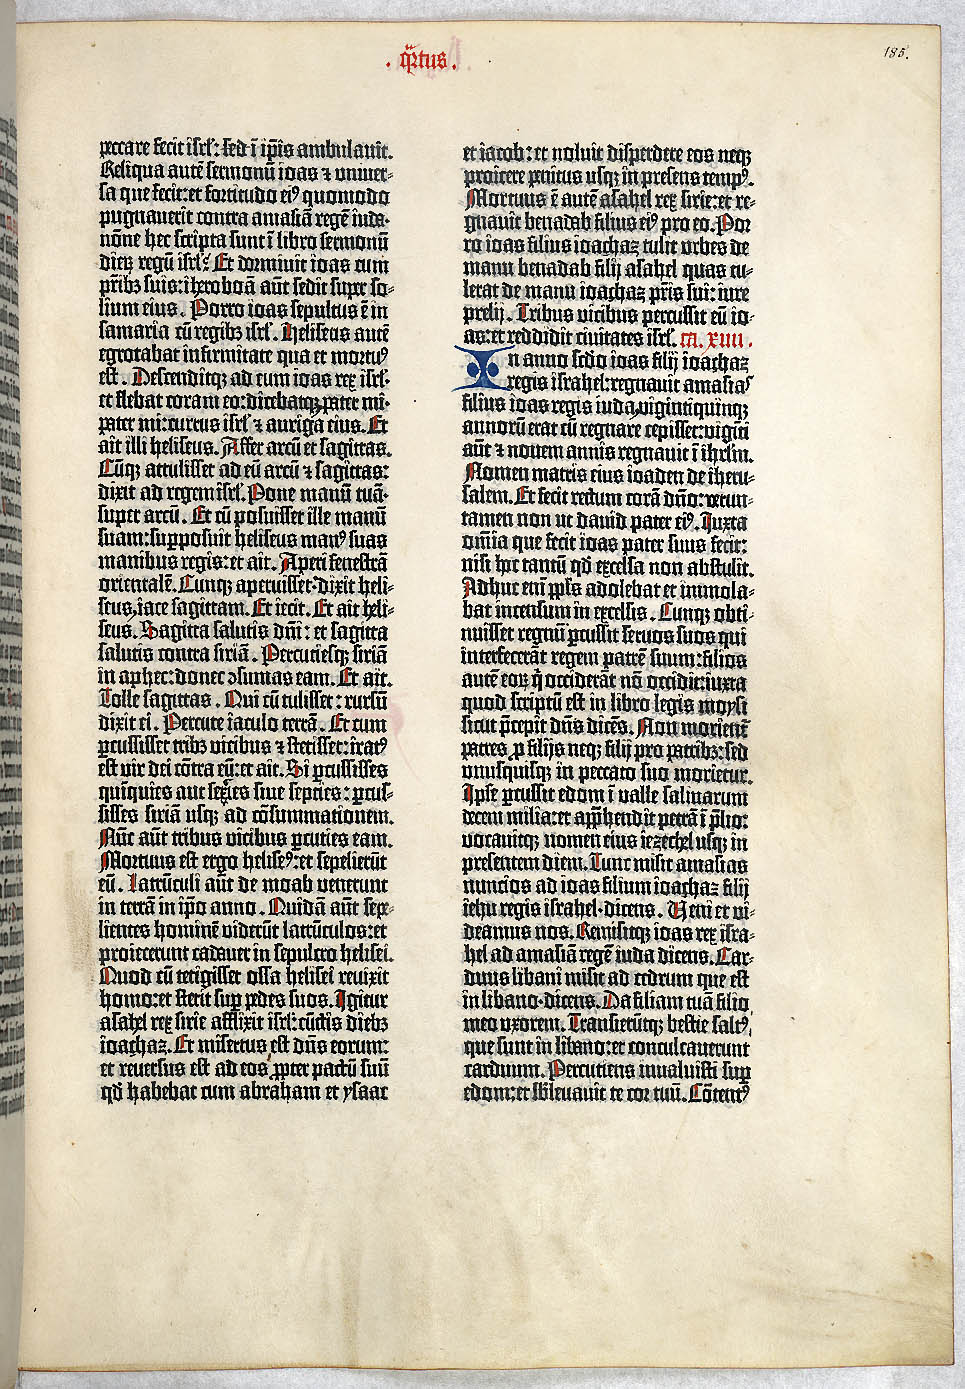 . q̄rtus.
185.
peccare fecit isrl̄: sed ī ip̄is ambulauit.
Reliqua autē sermonū ioas ⁊ vniuer-
sa que fecit: et fortitudo eiꝰ quomodo
pugnauerit contra amasiā regē iuda·
nōne hec scripta sunt ī libro sermonū
dieꝝ regū isrl̄? Et dormiuit ioas cum
p̄ribꝫ suis: iheroboā aūt sedit super so-
lium eius. Porro ioas sepultus ē in
samaria cū regibꝫ isrl̄. Heliseus autē
egrotabat infirmitate qua et mortuꝰ
est. Descenditqꝫ ad eum ioas rex isrl̄·
et flebat coram eo: dicebatqꝫ, pater mi·
pater mi: currus isrl̄ ⁊ auriga eius. Et
ait illi heliseus. Affer arcū et sagittas.
Cūqꝫ attulisset ad eū arcū ⁊ sagittas:
dixit ad regem isrl̄. Pone manū tuā·
super arcū. Et cū posuisset ille manū
suam: supposuit heliseus manꝰ suas
manibus regis: et ait. Aperi fenestrā
orientalē. Cunqꝫ aperuisset· dixit heli-
seus, iace sagittam. Et iecit. Et ait heli-
seus. Sagitta salutis dn̄i: et sagitta
salutis contra siriā. Percutiesqꝫ siriā
in aphec: donec ꝯsumas eam. Et ait.
Tolle sagittas. Qui cū tulisset: rursū
dixit ei. Percute iaculo terrā. Et cum
ꝑcussisset tribꝫ vicibus ⁊ stetisset: iratꝰ
est vir dei cōtra eū: et ait. Si ꝑcussisses
quinquies aut sexies siue septies: ꝑcus-
sisses siriā usqꝫ ad cōsummationem.
Nūc aūt tribus vicibus ꝑcuties eam.
Mortuus est ergo heliseꝰ: et sepelierūt
eū. Latrūculi aūt de moab venerunt
in terrā in ip̄o anno. Quidā aūt sepe-
lientes hominē viderūt latrūculos: et
proiecerunt cadauer in sepulcro helisei.
Quod cū tetigisset ossa helisei reuixit
homo: et stetit sup̄ pedes suos. Igitur
asahel rex sirie afflixit isrl̄: cūctis diebꝫ
ioachaz. Et misertus est dn̄s eorum:
et reuersus est ad eos ꝓpter pactū suū
qd̄ habebat cum abraham et ysaac
et iacob: et noluit disperdere eos neqꝫ
proicere penitus usqꝫ in presens tempꝰ.
Mortuus ē autē asahel rex sirie: et re-
gnauit benadab filius eiꝰ pro eo. Por
ro ioas filius ioachaz tulit vrbes de
manu benadab filij asahel quas tu-
lerat de manu ioachaz p̄ris sui: iure
prelij. Tribus vicibus percussit eū io-
as: et reddidit ciuitates isrl̄. ca. xiiii.
In anno scd̄o ioas filij ioachaz
regis israhel: regnauit amasias
filius ioas regis iuda, vigintiquinqꝫ
annorū erat cū regnare cepisset: viginti
aūt ⁊ nouem annis regnauit ī ihrl̄m.
Nomen matris eius ioaden de iheru-
salem. Et fecit rectum corā dn̄o: verun-
tamen non ut dauid pater eiꝰ. Iuxta
omīa que fecit ioas pater suus fecit:
nisi hoc tantū qd̄ excelsa non abstulit.
Adhuc eni ppl̄s adolebat et immola-
bat incensum in excelsis. Cunqꝫ obti-
nuisset regnū ꝑcussit seruos suos qui
interfecerāt regem patrē suum: filios
autē eoꝝ q̄ occiderāt nō occidit: iuxta
quod scriptū est in libro legis moysi
sicut p̄cepit dn̄s dicēs. Non morient̄
patres ꝓ filijs neqꝫ filij pro patribꝫ: sed
vnusquisqꝫ in peccato suo morietur.
Ipse ꝑcussit edom ī valle salinarum
decem milia: et app̄hendit petrā ī p̄lio:
vocauitqꝫ nomen eius iezechel usqꝫ in
presentem diem. Tunc misit amasias
nuncios ad ioas filium ioachaz filij
iehu regis israhel· dicens. Veni et vi-
deamus nos. Remisitqꝫ ioas rex isra-
hel ad amasiā regē iuda dicens. Car-
duus libani misit ad cedrum que est
in libano· dicens. Da filiam tuā filio
meo vxorem. Transierūtqꝫ bestie saltꝰ,
que sunt in libano: et conculcauerunt
carduum. Percutiens inualuisti sup̄
edom: et sbleuauit te cor tuū. Cōtentꝰ